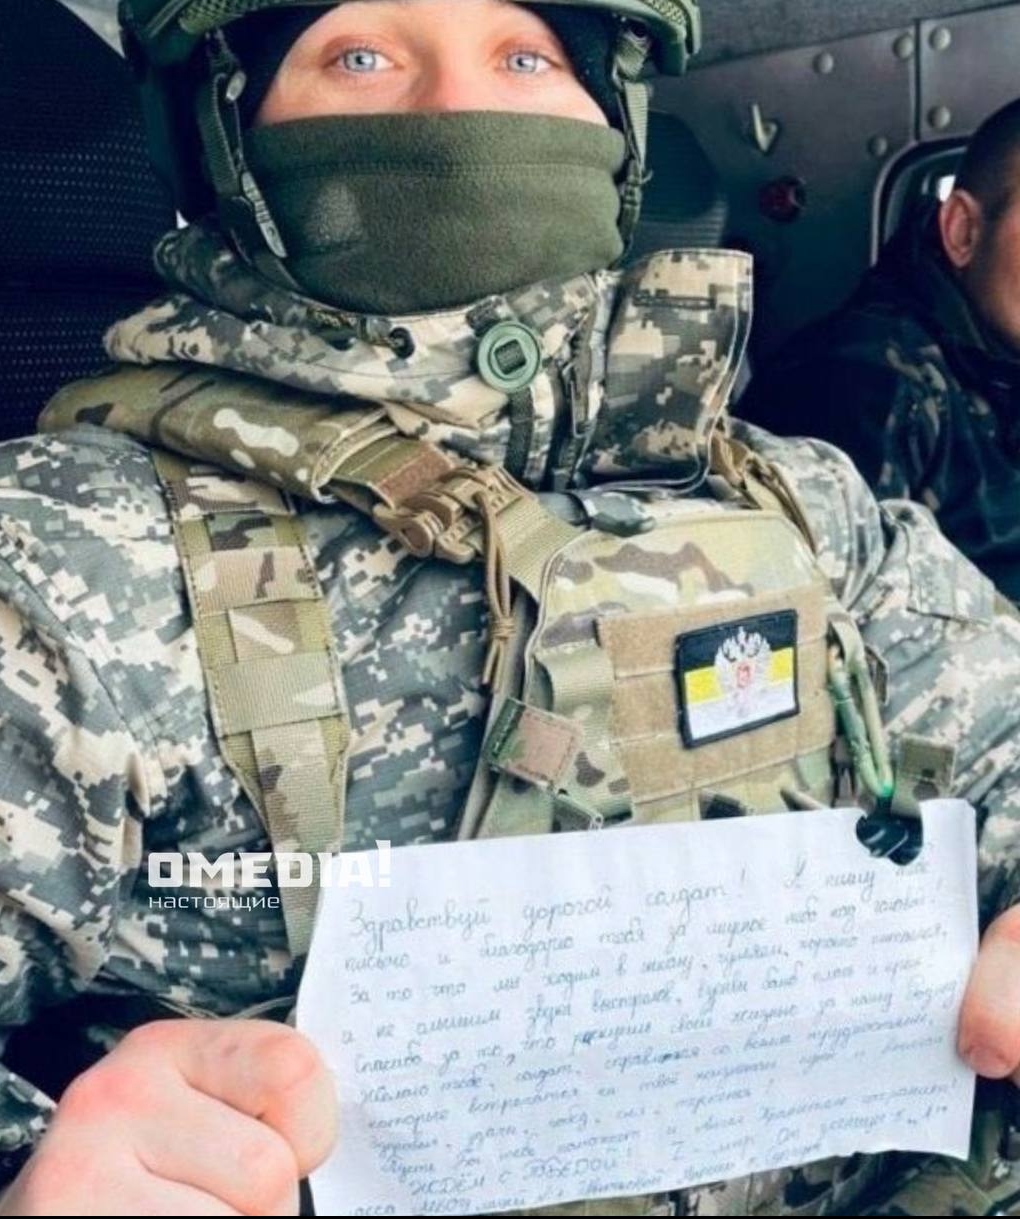 OMEDIA!
настоящие
Здравствуй дорогой солдат! Я пишу тебе
письмо и благодарю тебя за мирное небо над головой!
За то что мы ходим в школу, гуляем, хорошо питаемся,
а не слышим звуки выстрелов,
Спасибо за то, что рискуешь своей жизнью за нашу Родину
Желаю тебе, солдат, справиться со всеми трудностями,
которые встретятся на твоём жизненном пути и
Здоровья, удачи, побед, сил, терпения!
Пусть Бог тебе помогает и Ангел Хранитель сохраняет!
ЖДЁМ С ПОБЕДОЙ!